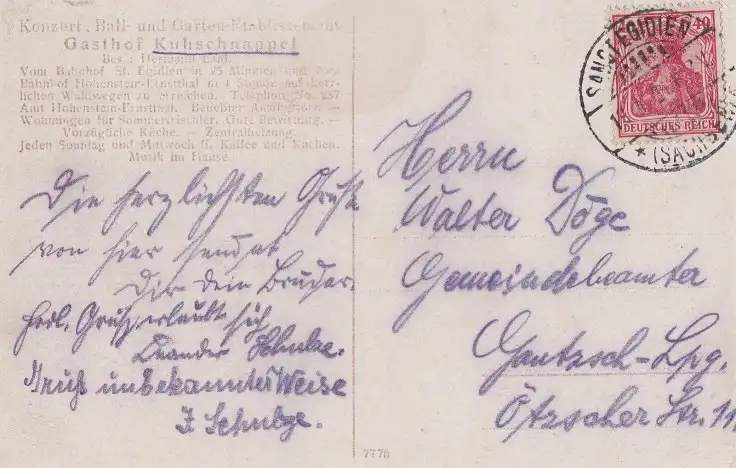 Konzert-, Ball- und Garten-Etablissement
Gasthof Kuhschnappel
Bes.: Hermann
Vom Bahnhof St. Egidien in 25 Minuten und vom
Bahnhof Hohenstein-Ernstthal in 1 Stunde auf herr-
lichen Waldwegen zu erreichen. Telephon 257
Amt Hohenstein-Ernstthal. Beliebter
Wohnungen für Sommerfrischler. Gute Bewirtung. —
Vorzügliche Küche. — Zentralheizung.
Jeden Sonntag und Mittwoch ff. Kaffee und Kuchen.
Musik im Hause
Die herzlichsten Grüße
von hier sendet
Dir dein Bruder.
Herzl. Grüße, erlaubt sich
Schulze.
Gruß unbekannterWeise
Schulze.
Herrn
Walter Döge
Gemeindebeamter
Gautzsch-Lpg.
Ötzscher Str. 11
SANCT EGIDIEN
* (SACHSEN)
DEUTSCHES REICH
7776